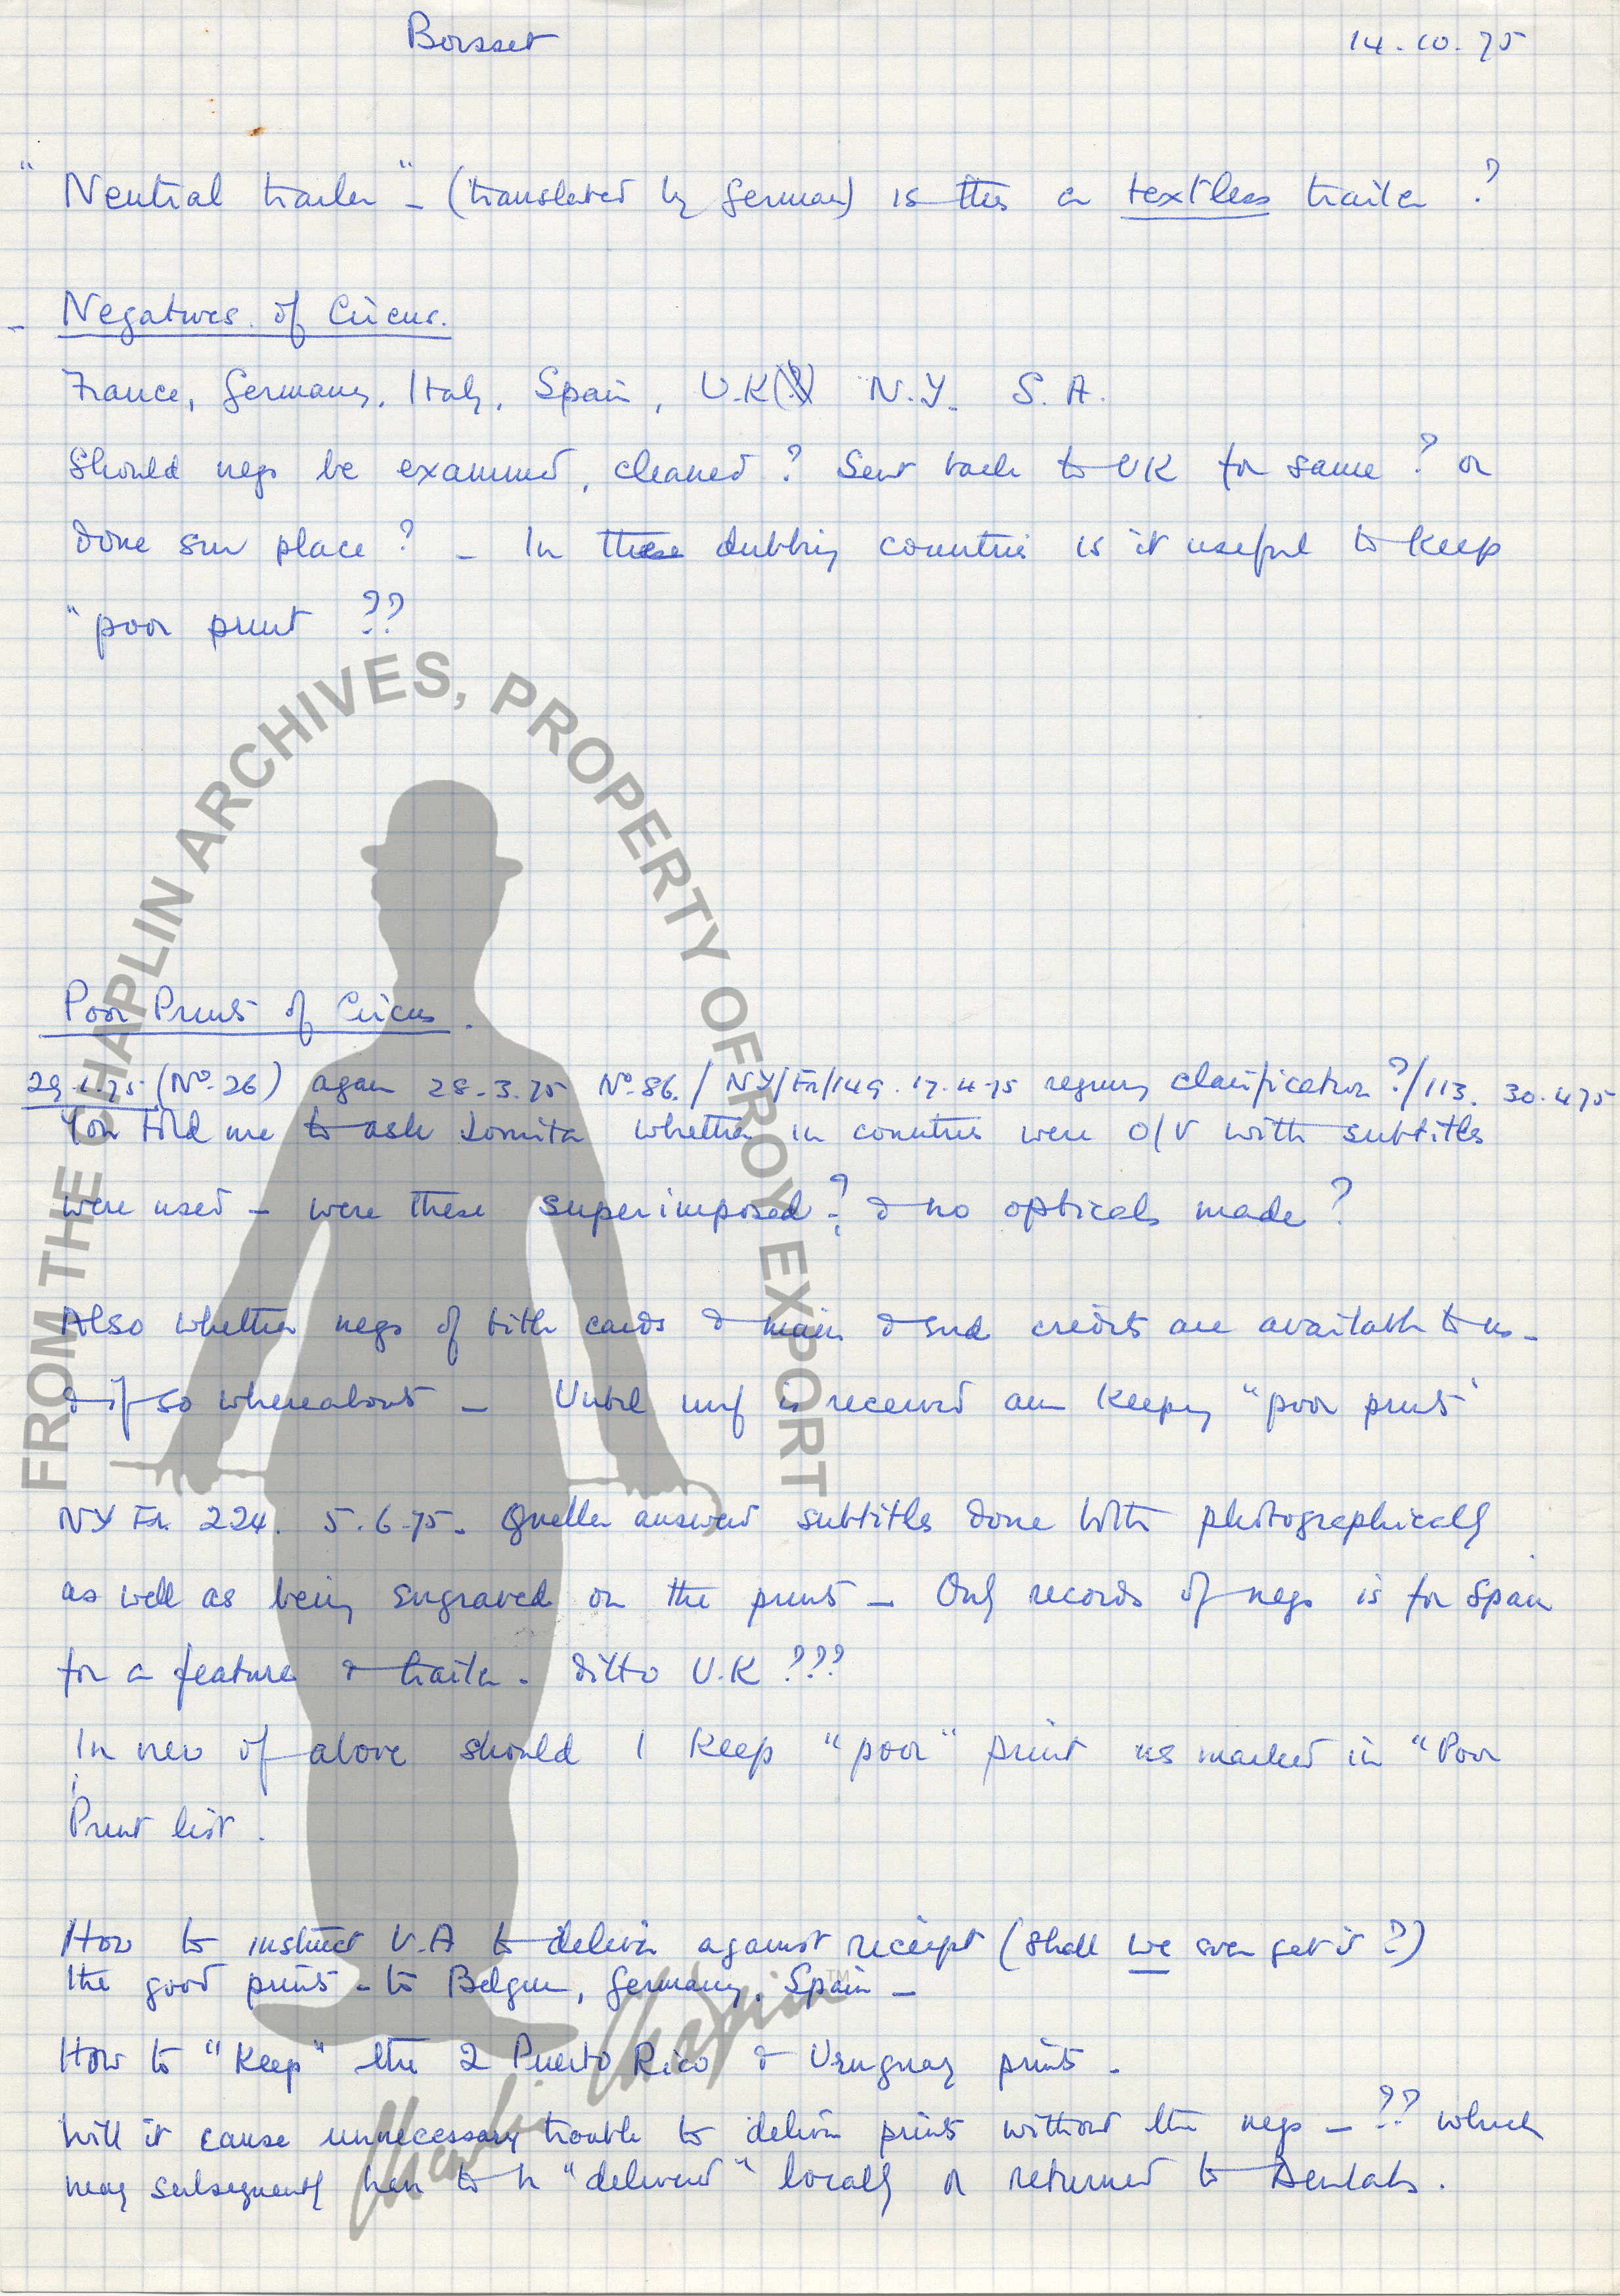 Boisset 14.10.75
"Neutral trailer" - (translated by German) is this a textless trailer ?
- Negatives of Circus.
France, Germany, Italy, Spain, U.K N.Y. S.A.
Should negs be examined, cleaned ? Sent back to UK for same ? or
done sur place ? - In these dubbing countries is it useful to keep
"poor print ??
Poor Prints of Circus.
29.1.75 (No. 26) again 28.3.75 No 86. / NY/Fr/149. 17.4.75 clarification ?/113. 30.4.75
You told me to ask Lomita whether in countries were O/V with subtitles
were used - were these superimposed ? & no opticals made ?
Also whether negs of title cards & main & end credits are available to us -
& if so whereabouts - Until inf is received am keeping "poor prints"
NY Fr. 224. 5.6.75. Queller answered subtitles done both photographically
as well as being engraved on the prints - Only records of negs is for Spain
for a feature & trailer. ditto U.K ???
In view of above should I keep "poor" print as marked in "Poor
Print list.
How to instruct U.A to deliver against receipt (shall we ever get it ?)
the good prints - to Belgium, Germany, Spain -
How to "keep" the 2 Puerto Rico & Uruguay prints -
Will it cause unnecessary trouble to deliver prints without the negs - ?? which
may subsequently have to be "delivered" locally or returned to Denlabs.
FROM THE CHAPLIN ARCHIVES, PROPERTY OF ROY EXPORT
Charlie Chaplin™